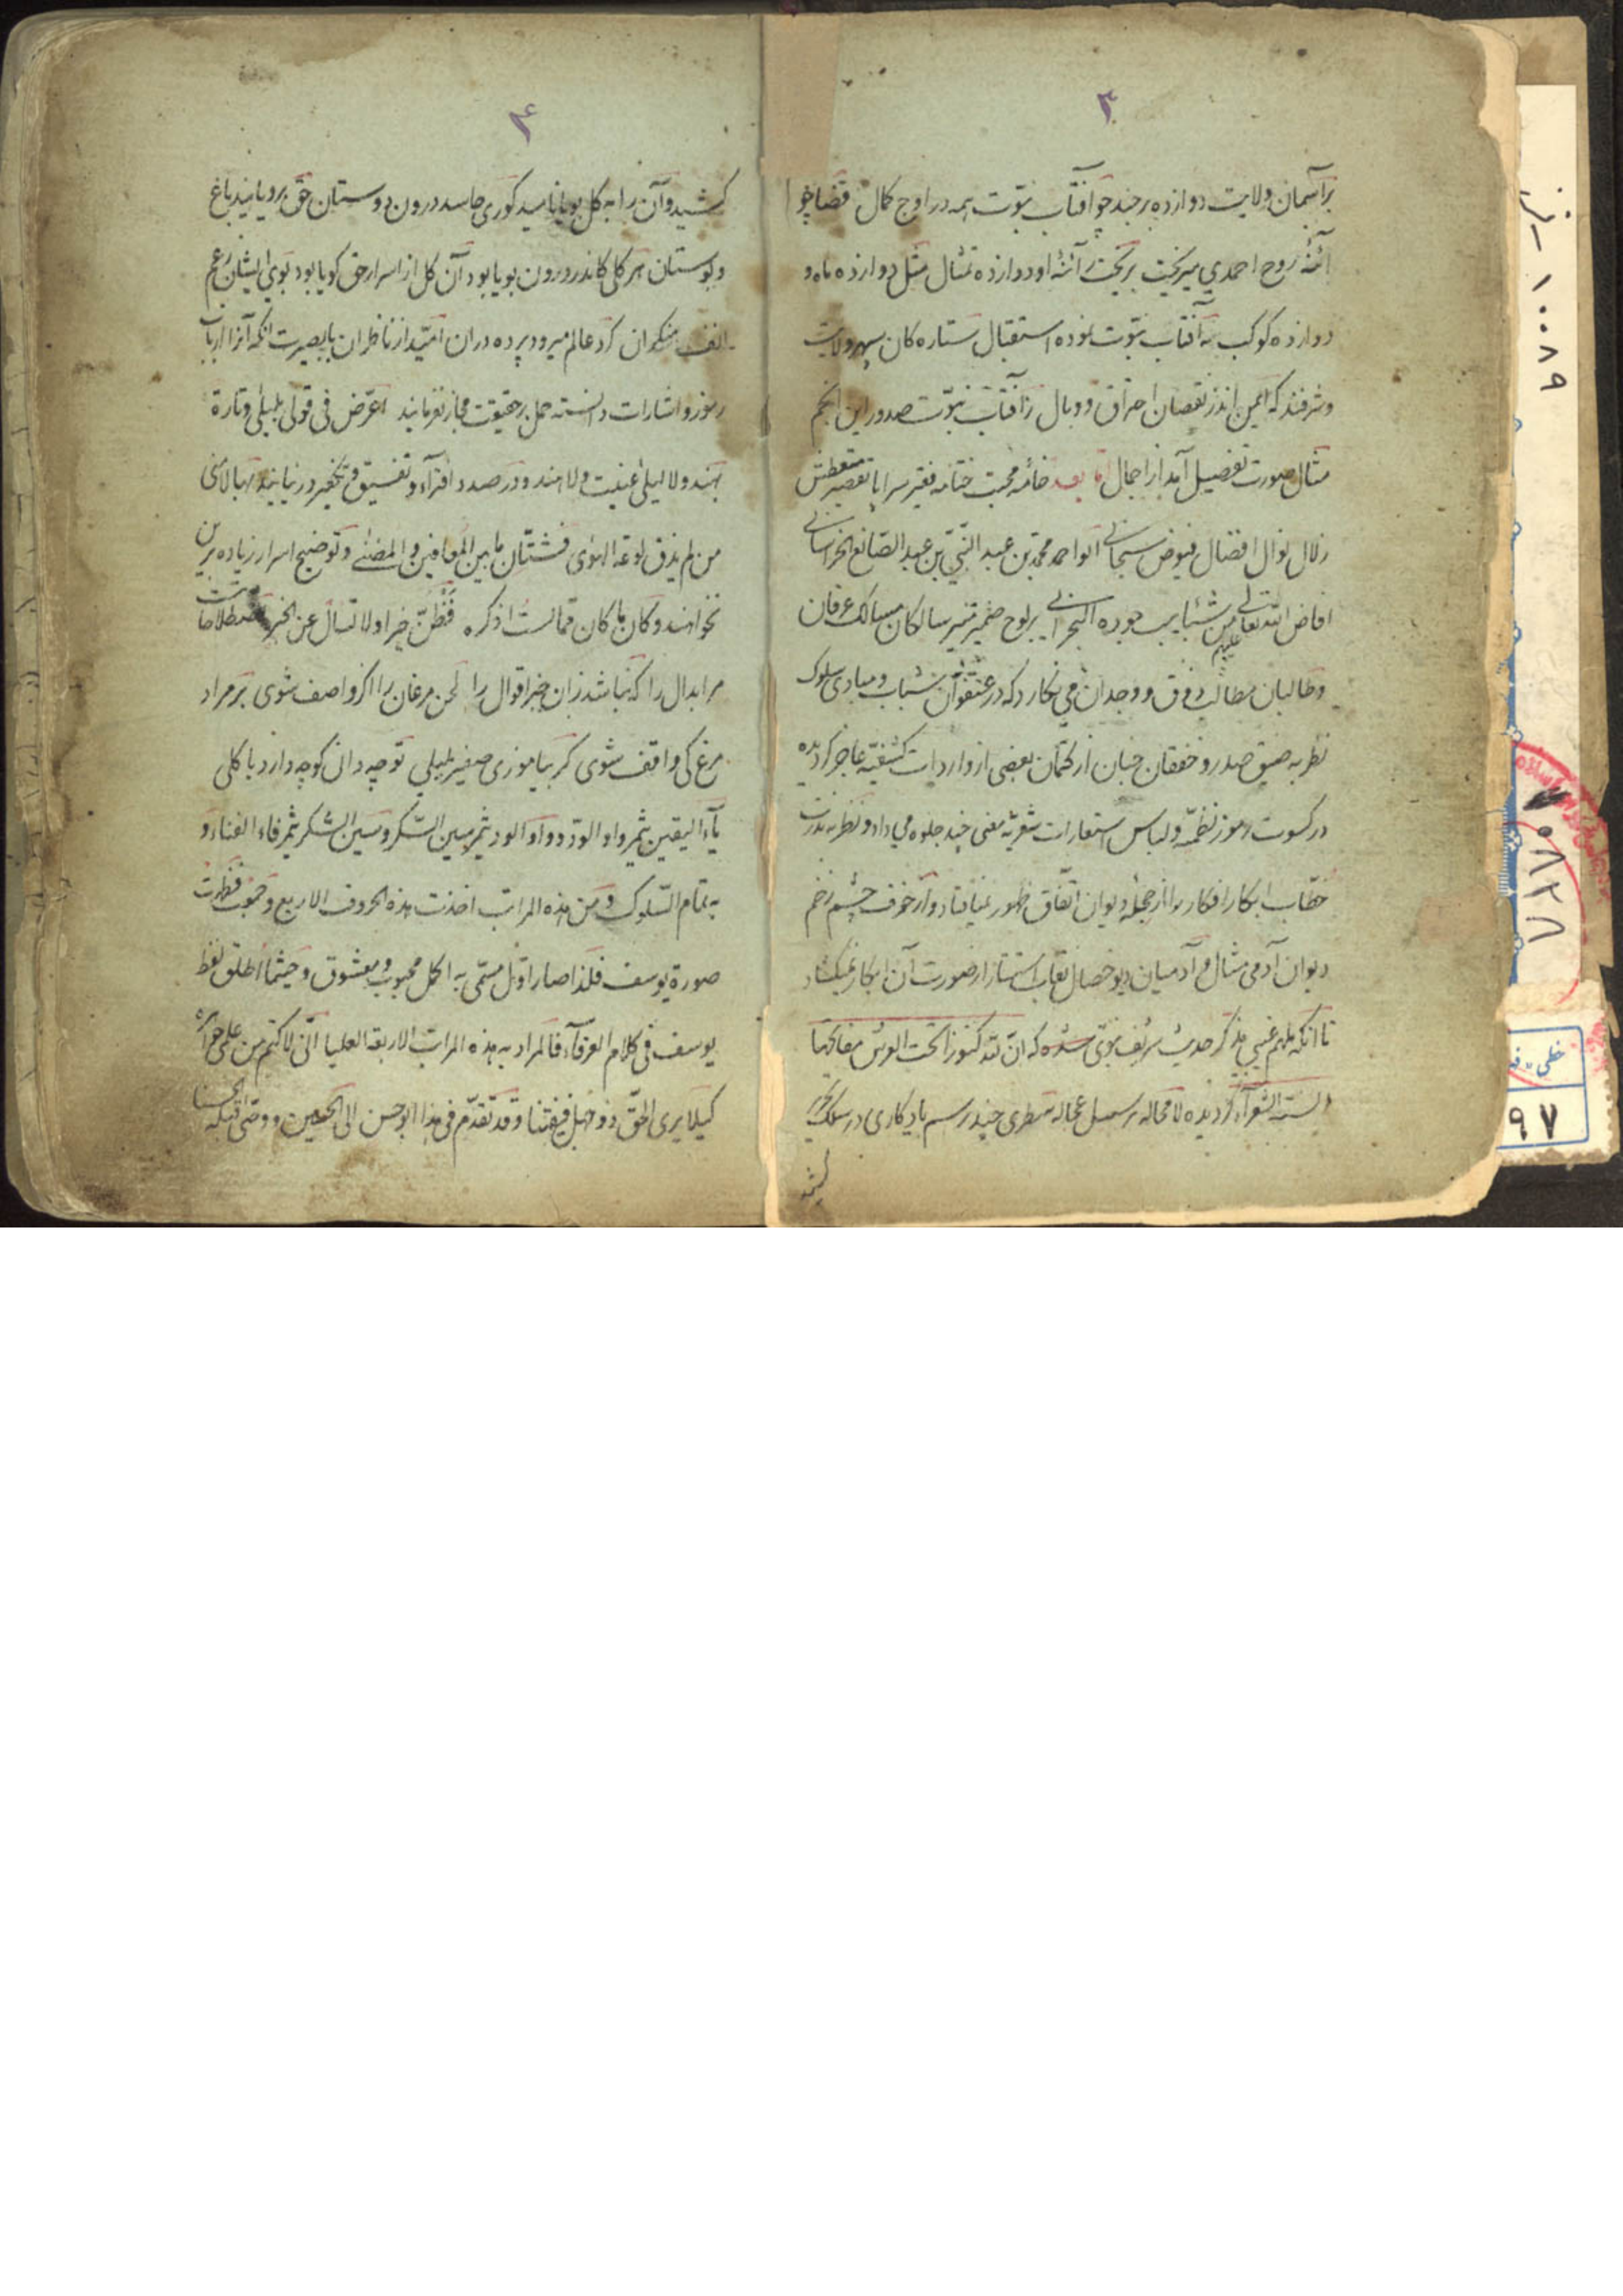 ۳
برآسمان ولایت دوازده برجند چو آفتاب نبوّت همه در اوج کمال قضا چو
آئنهٔ روح احمدی میریخت بریخت زآئنهٔ او دوازده تمثال مثل دوازده ماه و
دوازده کوکب به آفتاب نبوّت نموده استقبال ستاره کان سپهر ولایت
وشرفند که ایمن اند ز نقصان احتراق و وبال زآفتاب نبوّت صدور این انجم
مثال صورت تفصیل آمد از اجمال امّا بعد خامهٔ محبت ختامه فقیر سراپا تقصیر متعطش
زلال نوال افضال فیوض سبحانی ابوا محمد بن عبد النّبیّ بن عبد الصّانع الخراسانی
افاض الله تعالی علیهم من شئابیب جوده البحرانی برلوح ضمیر تنیر سالکان مسالک عرفان
وطالبان مطالب ذوق و وجدان می نکارد که در عنفوان شباب و مبادی سلوک
نظر به ضیق صدر و خفقان جنان از کتمان بعضی از واردات کشفیّه عاجز کردیده
در کسوت رموز نظمیّه و لباس استعارات شعریّه معنی چند جلوه می داد و نظر به ندرت
خطّاب ابکار افکار را از حجلهٔ دیوان اتّفاق ظهور نمیافتاد و از خوف چشم زخم
دیوان آدمی مثال و آدمیان دیو خصال نقاب استتار از صورت آن ابکار نمیکشاد
تا انکه ملهم غیبی مذکر حدیث شریف نبوّی شده که انّ لله کنوزا تحت العرش مفاتیحها
السنة الشعرآء کردیده لا محاله بر سبیل عجاله سطری چند برسم یادکاری در سلک تحریر
کشید
۴
کشید و آن را به کل بویا نامید کوری حاسد درون دوستان حق برویانید باغ
و بوستان هر کلی کاندر درون بویا بود آن کل از اسرار حق کویا بود بوی ایشان رغم
انف منکران کرد عالم میرود پرده دران امّید از ناظران با بصیرت انکه آنرا ارباب
رموز و اشارات دانسته حمل بر حقیقت مجاز نفرمایند اعرّض فی قولی بلیلی و تارة
بهند و لا لیلی عنیت و لا هند و در صدد افتراء و تفسیق و تکفیر در نیایند
من لم یذق لوعة الهوی فشتّان ما بین المعافین و المضنی و توضیح اسرار زیاده برین
نخواهند و کان ما کان ممّا لست اذکره فظنّ خیرا و لا تسأل عن الخبر اصطلاحات
مر ابدال را که نباشد زان خبر اقوال را لحن مرغان را اکر واصف شوی بر مراد
مرغ کی واقف شوی کر بیاموزی صفیر بلبلی تو چه دانی کو چه دارد با کلی
یآء الیقین ثمر واو الودّ و واو الود ثمر سین السّکر و سین الشکر ثمر فاء الفناء و
به تمام السّلوک و من هذه المراتب اخذت هذه الحروف الاربع و حسب فظهرت
صورة یوسف فلذا صار اوّل مسمّی به اکمل محبوب و معشوق و حیثما اطلق لفظ
یوسف فی کلام العرفآء فالمراد به هذه المراتب الاربعة العلیا انّی لاکتم من علمی جواهره
کیلا یری الحقّ ذو جهل فیفتتنا و قد تقدّم فی هذا ابو حسن الی الحسین و وصّی قبله الحسنا
۱۰۰۸۹
خطی
۹۷